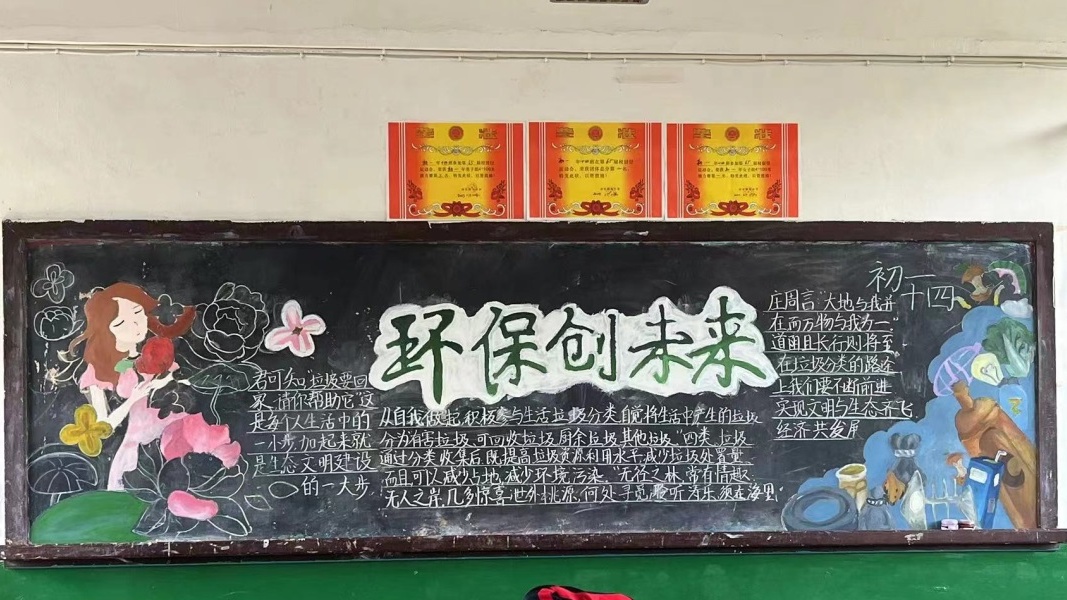 奖状
奖状
奖状
初一
十四
环保创未来
君可知"垃圾要回
家,请你帮助它"这
是每个人生活中的
一小步,加起来就
是生态文明建设
的一大步.
从自我做起,积极参与生活垃圾分类,自觉将生活中产生的垃圾
分为有害垃圾、可回收垃圾、厨余垃圾、其他垃圾"四类.垃圾
通过分类收集后,既提高垃圾资源利用水平,减少垃圾处置量
而且可以减少占地,减少环境污染."无径之林,常有情趣,
无人之岸,几多惊喜,世外桃源,何处寻觅,聆听涛乐,须在海里"
庄周言"大地与我并
在而万物与我为一."
道阻且长行则将至
在垃圾分类的路途
上我们要不断前进
实现文明与生态齐飞,
经济共发展